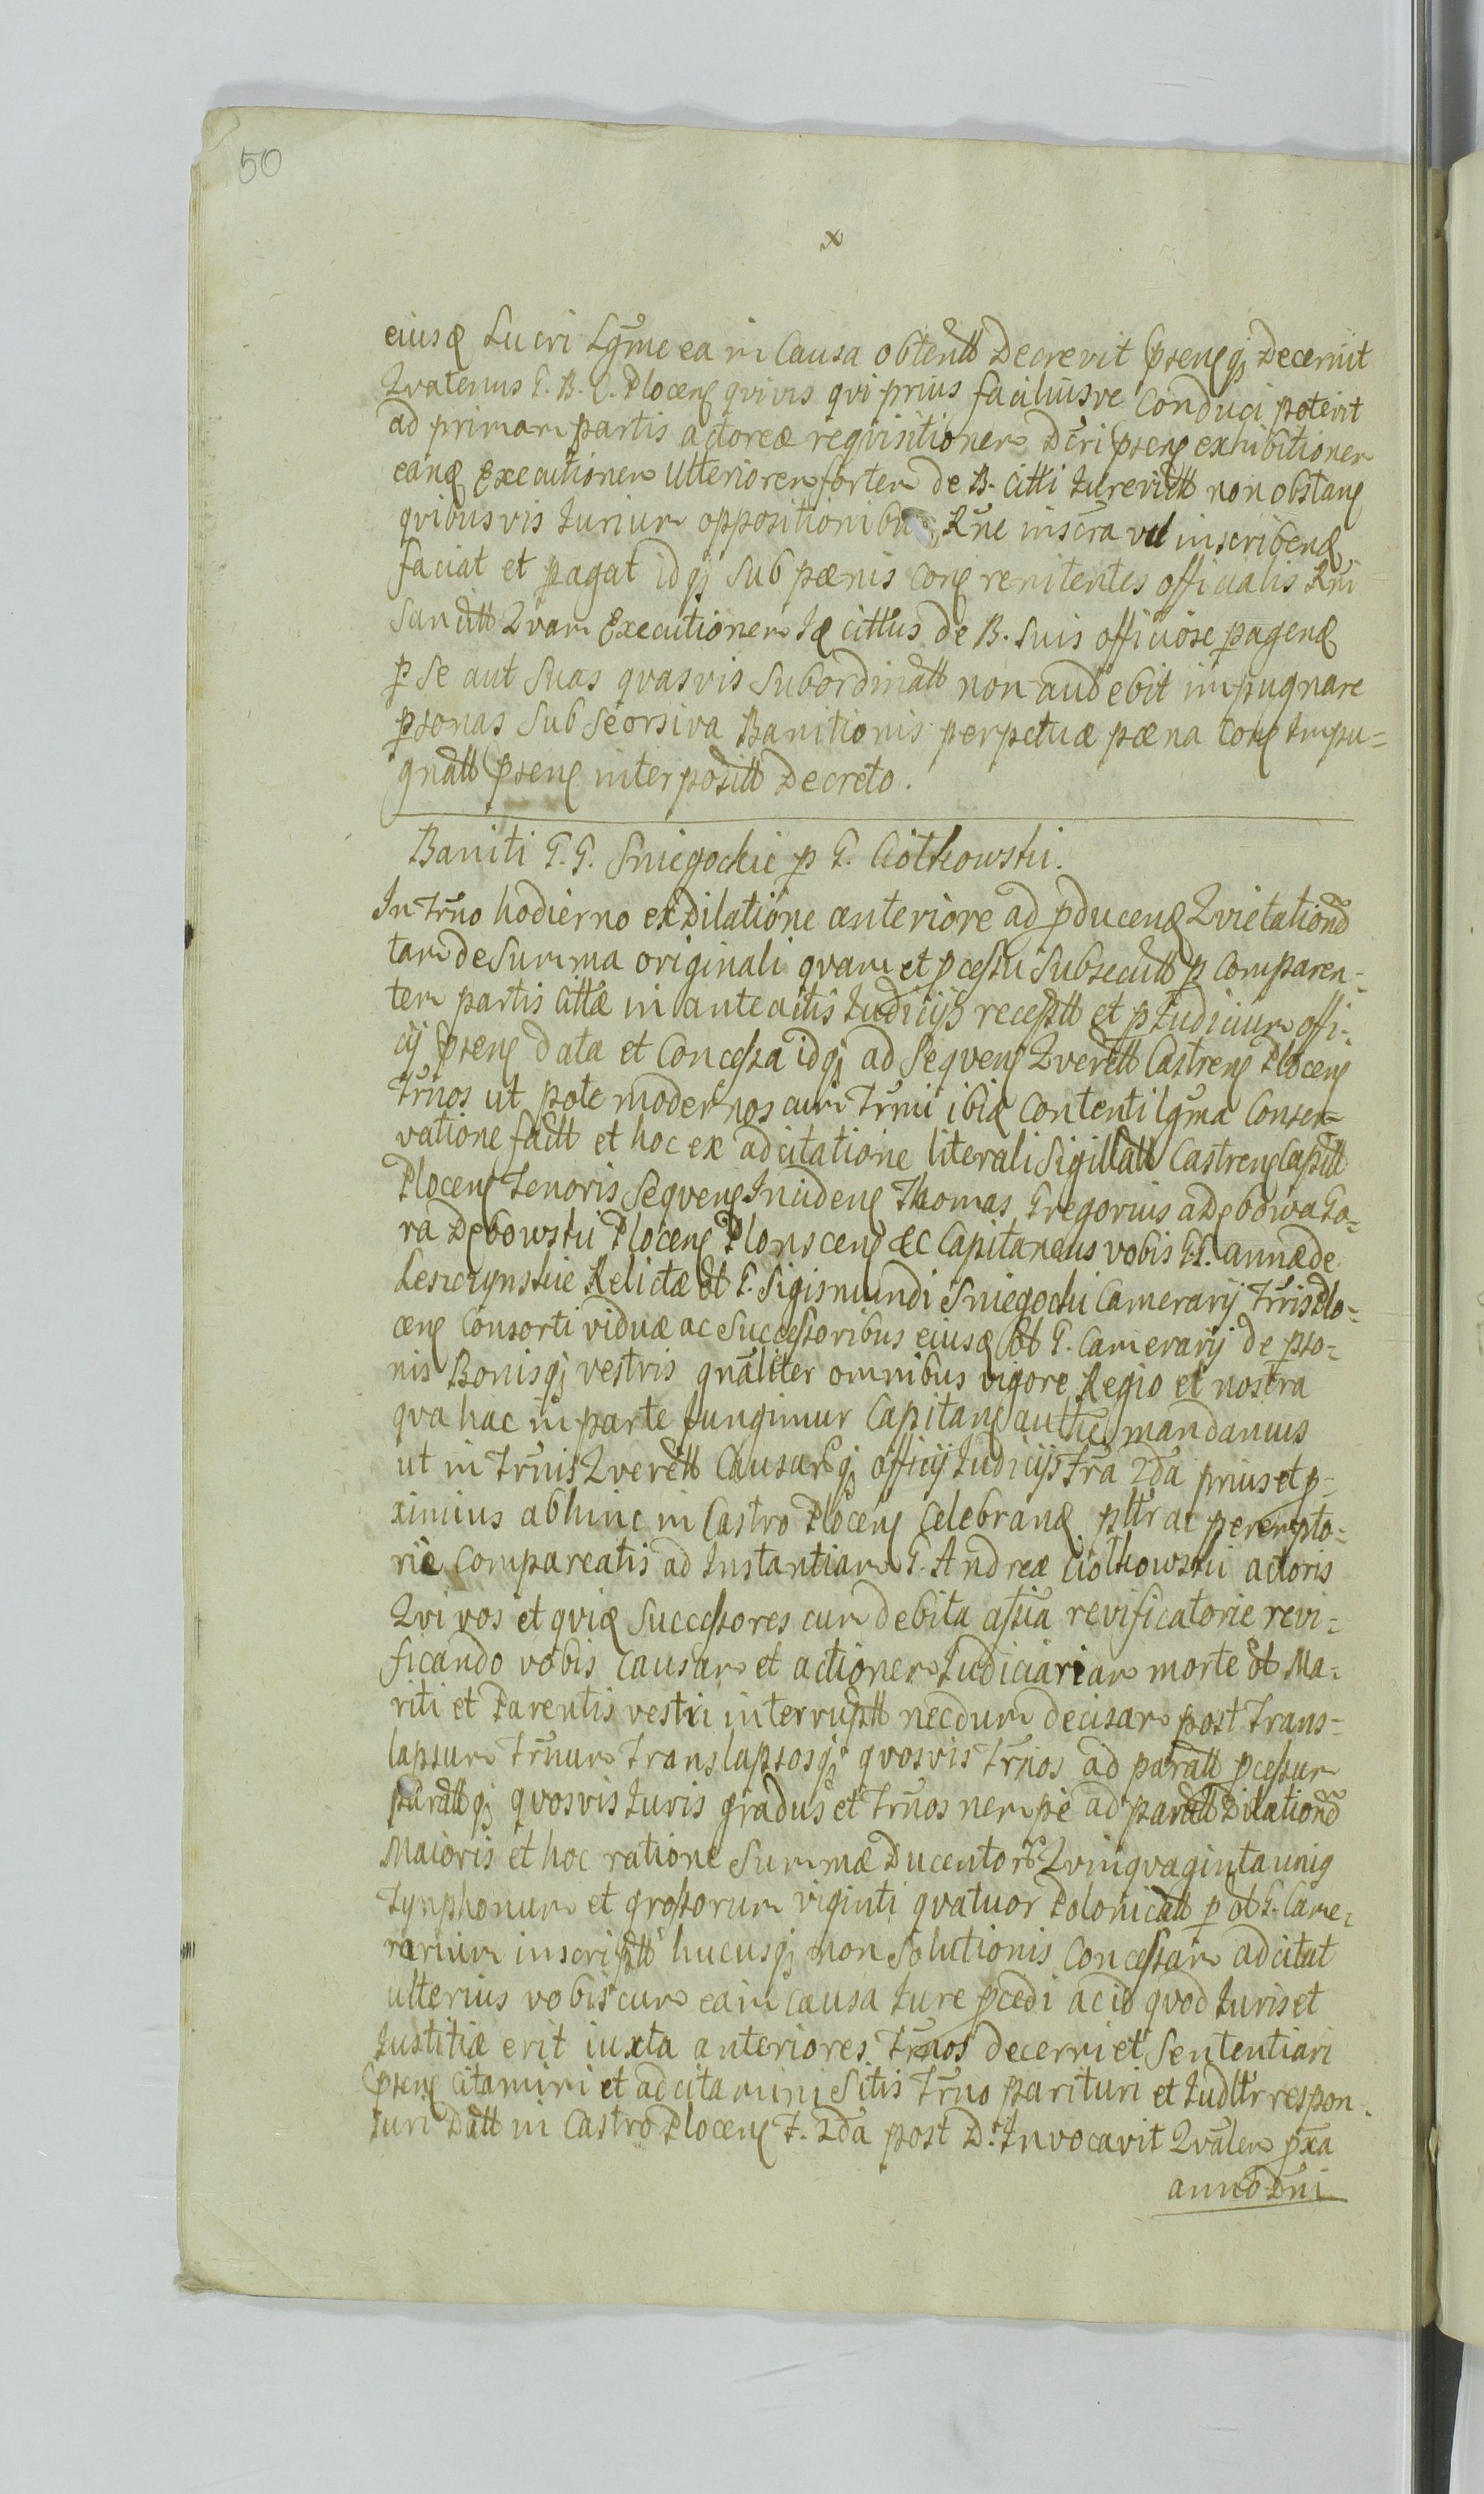 50
x
eiusq Lucri Lgme ea in Causa obtentt Decrevit psensqj Decernit
Qvatenus G. B. C. Plocens qvivis qvi prius faciliusve Conduci poterit
ad primam partis actoreæ reqvisitionem Dcri psens exhibitionem
eanq Executionem Ulteriorem fortem de B. Citti Iurevictt non obstans
qvibusvis Iurium oppositionibus Rne inscra vel inscribenq
faciat et pagat idqj Sub pænis Cons renitentes officialis Rni
Sancitt Qvam Executionem Iq cittus de B. Suis officiose pagenq
p Se aut Suas qvasvis Subordinatt non audebit impugnare
psonas Sub Seorsiva Banitionis perpetuæ pæna Cons Impu=
gnatt psens interpositt Decreto.
Baniti G. G. Sniegockie p G. Ciołkowski.
In Trno hodierno ex Dilatione anteriore ad pducenq Qvietationd
tam de Summa originali qvam et pcessu Subsecutt p Comparen=
tem partis Cittæ in anteactis Iudicijs receptt et p Iudicium offi=
cij psens data et Concessa idqj ad Seqvens Qverett Castrens Plocens
Trnos ut pote modernos cum Trmi ibiq Contenti lgma Conser=
vatione factt et hoc ex adcitatione literali Sigillatt Castrens Capitt
Plocens Tenoris Seqvens Incidens Thomas Gregorius a Dębowa Go=
ra Dębowski Plocens Plonscens &c Capitaneus vobis G.G. annæ de
Leszczynskie Relictæ ot G. Sigismundi Sniegocki Camerarij Trris Plo=
cens Consorti viduæ ac Successoribus eiusq ot G. Camerarij de pso=
nis Bonisqj vestris gnaliter omnibus vigore Regio et nostra
qva hac in parte fungimur Capitans authe mandamus
ut in Trnis Qverett Causarqj officij Iudicijs Fra 2da prius et p=
ximius abhinc in Castro Plocens Celebranq pltr ac perempto=
rie Compareatis ad Instantiam G. Andreæ Ciołkowski actoris
Qvi vos et qviq Successores cum debita assia revificatorie revi=
ficando vobis Causam et actionem Iudiciariam morte ot Ma=
riti et Parentis vestri interruptt necdum decisam post Trans=
lapsum Trnum Translapsosqj qvosvis Trnos ad paratt pcessum
parattqj qvosvis Iuris gradus et Trnos nempe ad paratt Dilationd
Maioris et hoc ratione Summæ Ducentor Qvinqvaginta unius
Tynphonum et grossorum viginti qvatuor Polonicatt p ot G. Came=
rarium inscriptt hucusqj non Solutionis Concessam adcitat
ulterius vobiscum ea in Causa Iure pcedi ac id qvod Iuris et
Iustitiæ erit iuxta anteriores Trnos decerni et Sententiari
psens Citamini et adcitamini Sitis Trno parituri et Iudltr respon=
suri Datt in Castro Plocens F. 2da post D. Invocavit Qvalem pxa
anno Dni